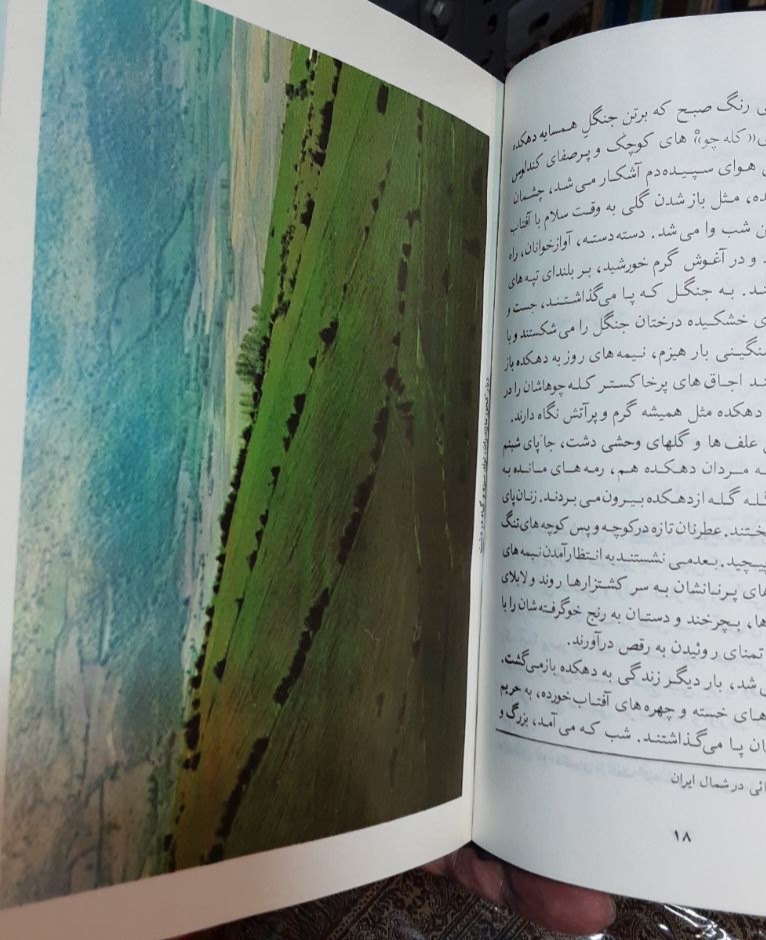 رنگ صبح که برتن جنگلِ همسایه دهکده
«کله چو» های کوچک و پرصفای کندلوس
هوای سپیده‌دم آشکار می‌شد، چشمان
مثل باز شدن گلی به وقت سلام با آفتاب
شب وا می‌شد. دسته‌دسته، آوازخوانان، راه
و در آغوش گرم خورشید، بر بلندای تپه‌های
به جنگل که پا می‌گذاشتند، جست و
خشکیده درختان جنگل را می‌شکستند و با
بار هیزم، نیمه‌های روز به دهکده باز
اجاق‌های پرخاکستر کله‌چوهاشان را در
دهکده مثل همیشه گرم و پرآتش نگاه دارند.
علف‌ها و گلهای وحشی دشت، جا پای شبنم
مردان دهکده هم، رمه‌های مانده به
گله از دهکده بیرون می‌بردند. زنان پای
عطرنان تازه در کوچه و پس کوچه‌های تنگ
بعد می‌نشستند به انتظار آمدن نیمه‌های
پرنانشان به سر کشتزارها روند و لابلای
بچرخند و دستان به رنج خوگرفته‌شان را با
تمنای روئیدن به رقص درآورند.
شد، بار دیگر زندگی به دهکده بازمی‌گشت.
خسته و چهره‌های آفتاب‌خورده، به حریم
پا می‌گذاشتند. شب که می‌آمد، بزرگ و
در شمال ایران
۱۸